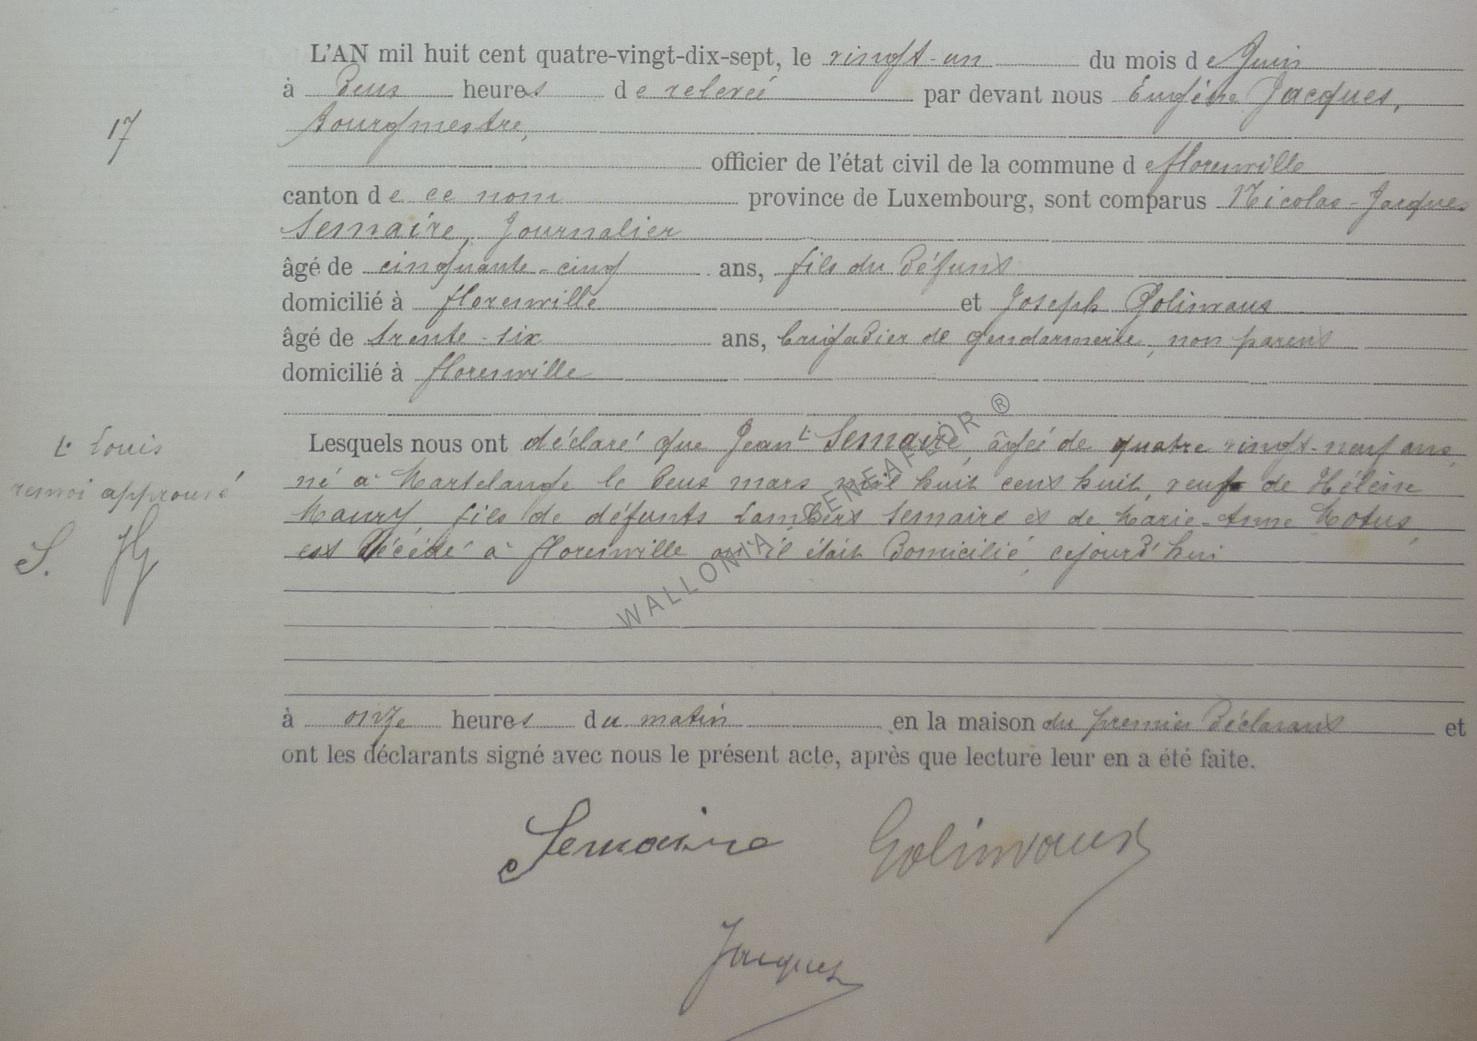 L'AN mil huit cent quatre-vingt-dix-sept, le vingt-un du mois de Juin
à deux heures de relevée par devant nous Eugène Jacques,
17
Bourgmestre,
officier de l'état civil de la commune de florenville
canton de ce nom province de Luxembourg, sont comparus Nicolas-Jacques
Semaire, Journalier
âgé de cinquante-cinq ans, fils du défunt
domicilié à florenville et Joseph Golinvaux
âgé de trente-six ans, brigadier de gendarmerie, non parent
domicilié à florenville
Lesquels nous ont déclaré que Jean L Semaire, âgé de quatre vingt-neuf ans,
L. Louis
né à Martelange le deux mars mil huit cent huit, veuf de Hélène
renvoi approuvé
Maury, fils de défunts Lambert Semaire et de Marie-Anne Motus,
S. JG
est décédé à florenville où il était domicilié, cejourd'hui
WALLONIA GENEAFLOR ®
à onze heures du matin en la maison du premier déclarant et
ont les déclarants signé avec nous le présent acte, après que lecture leur en a été faite.
Semaire Golinvaux
Jacques